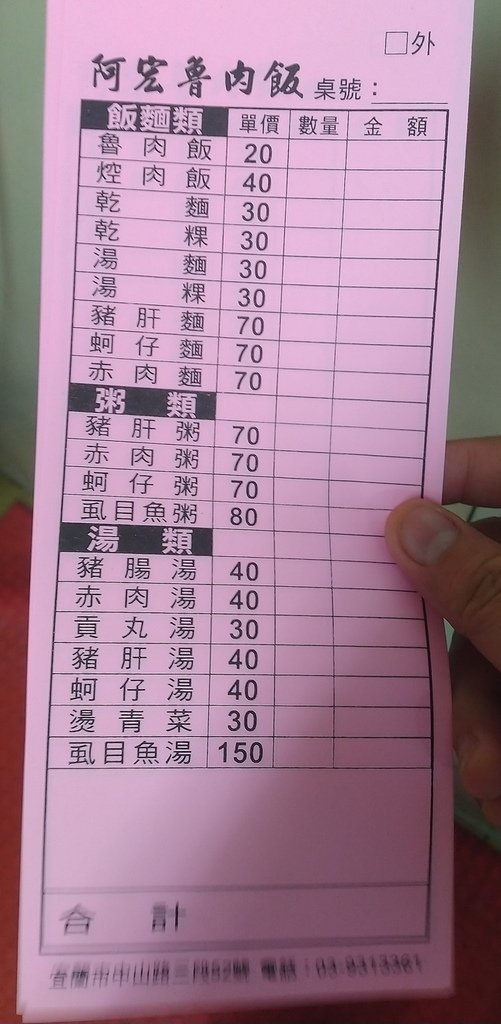 □外
阿宏魯肉飯 桌號：
飯麵類 單價 數量 金額
魯肉飯 20
焢肉飯 40
乾麵 30
乾粿 30
湯麵 30
湯粿 30
豬肝麵 70
蚵仔麵 70
赤肉麵 70
粥類
豬肝粥 70
赤肉粥 70
蚵仔粥 70
虱目魚粥 80
湯類
豬腸湯 40
赤肉湯 40
貢丸湯 30
豬肝湯 40
蚵仔湯 40
燙青菜 30
虱目魚湯 150
合計
宜蘭市中山路三段52號 電話：03-9313361